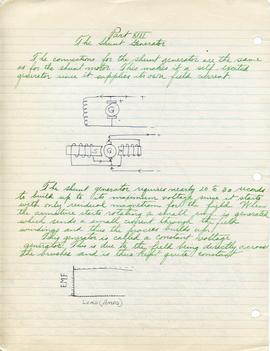 Part XIII
The Shunt Generator
The connections for the shunt generator are the same
as for the shunt motor. This makes it a self exited
generator since it supplies its own field current.
G
G
The shunt generator requires nearly 20 to 30 seconds
to build up to its maximum voltage since it starts
with only residual magnetism for the field. When
the armature starts rotating a small emf is generated
which sends a small current through the field
windings and thus the process builds up.
This generator is called a constant voltage
generator. This is due to the field being directly across
the brushes and is thus kept quite constant
E.M.F.
LOAD (Amps)